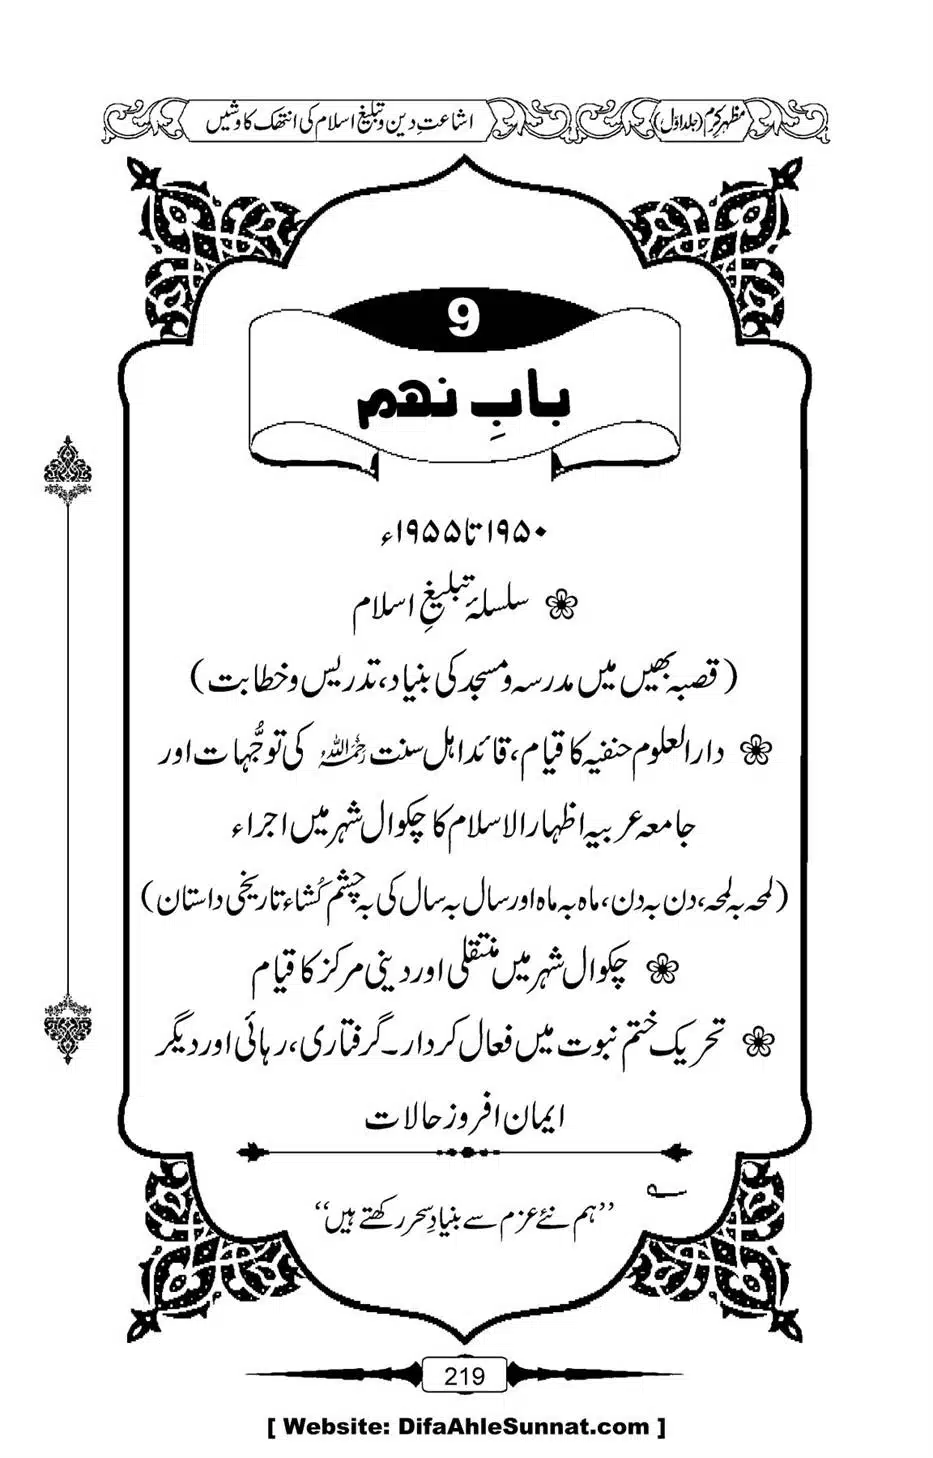 مظہر کرم (جلد اوّل) اشاعتِ دین و تبلیغِ اسلام کی انتھک کاوشیں
9
بابِ نہم
۱۹۵۰ تا ۱۹۵۵ء
سلسلۂ تبلیغِ اسلام
(قصبہ بھیں میں مدرسہ و مسجد کی بنیاد، تدریس و خطابت)
دارالعلوم حنفیہ کا قیام، قائد اہل سنت رحمہ اللہ کی توجُّہات اور
جامعہ عربیہ اظہار الاسلام کا چکوال شہر میں اجراء
(لمحہ بہ لمحہ، دن بہ دن، ماہ بہ ماہ اور سال بہ سال کی بہ چشم کُشاء تاریخی داستان)
چکوال شہر میں منتقلی اور دینی مرکز کا قیام
تحریک ختم نبوت میں فعال کردار۔ گرفتاری، رہائی اور دیگر
ایمان افروز حالات
؎
’’ہم نئے عزم سے بنیادِ سحر رکھتے ہیں‘‘
219
[ Website: DifaAhleSunnat.com ]